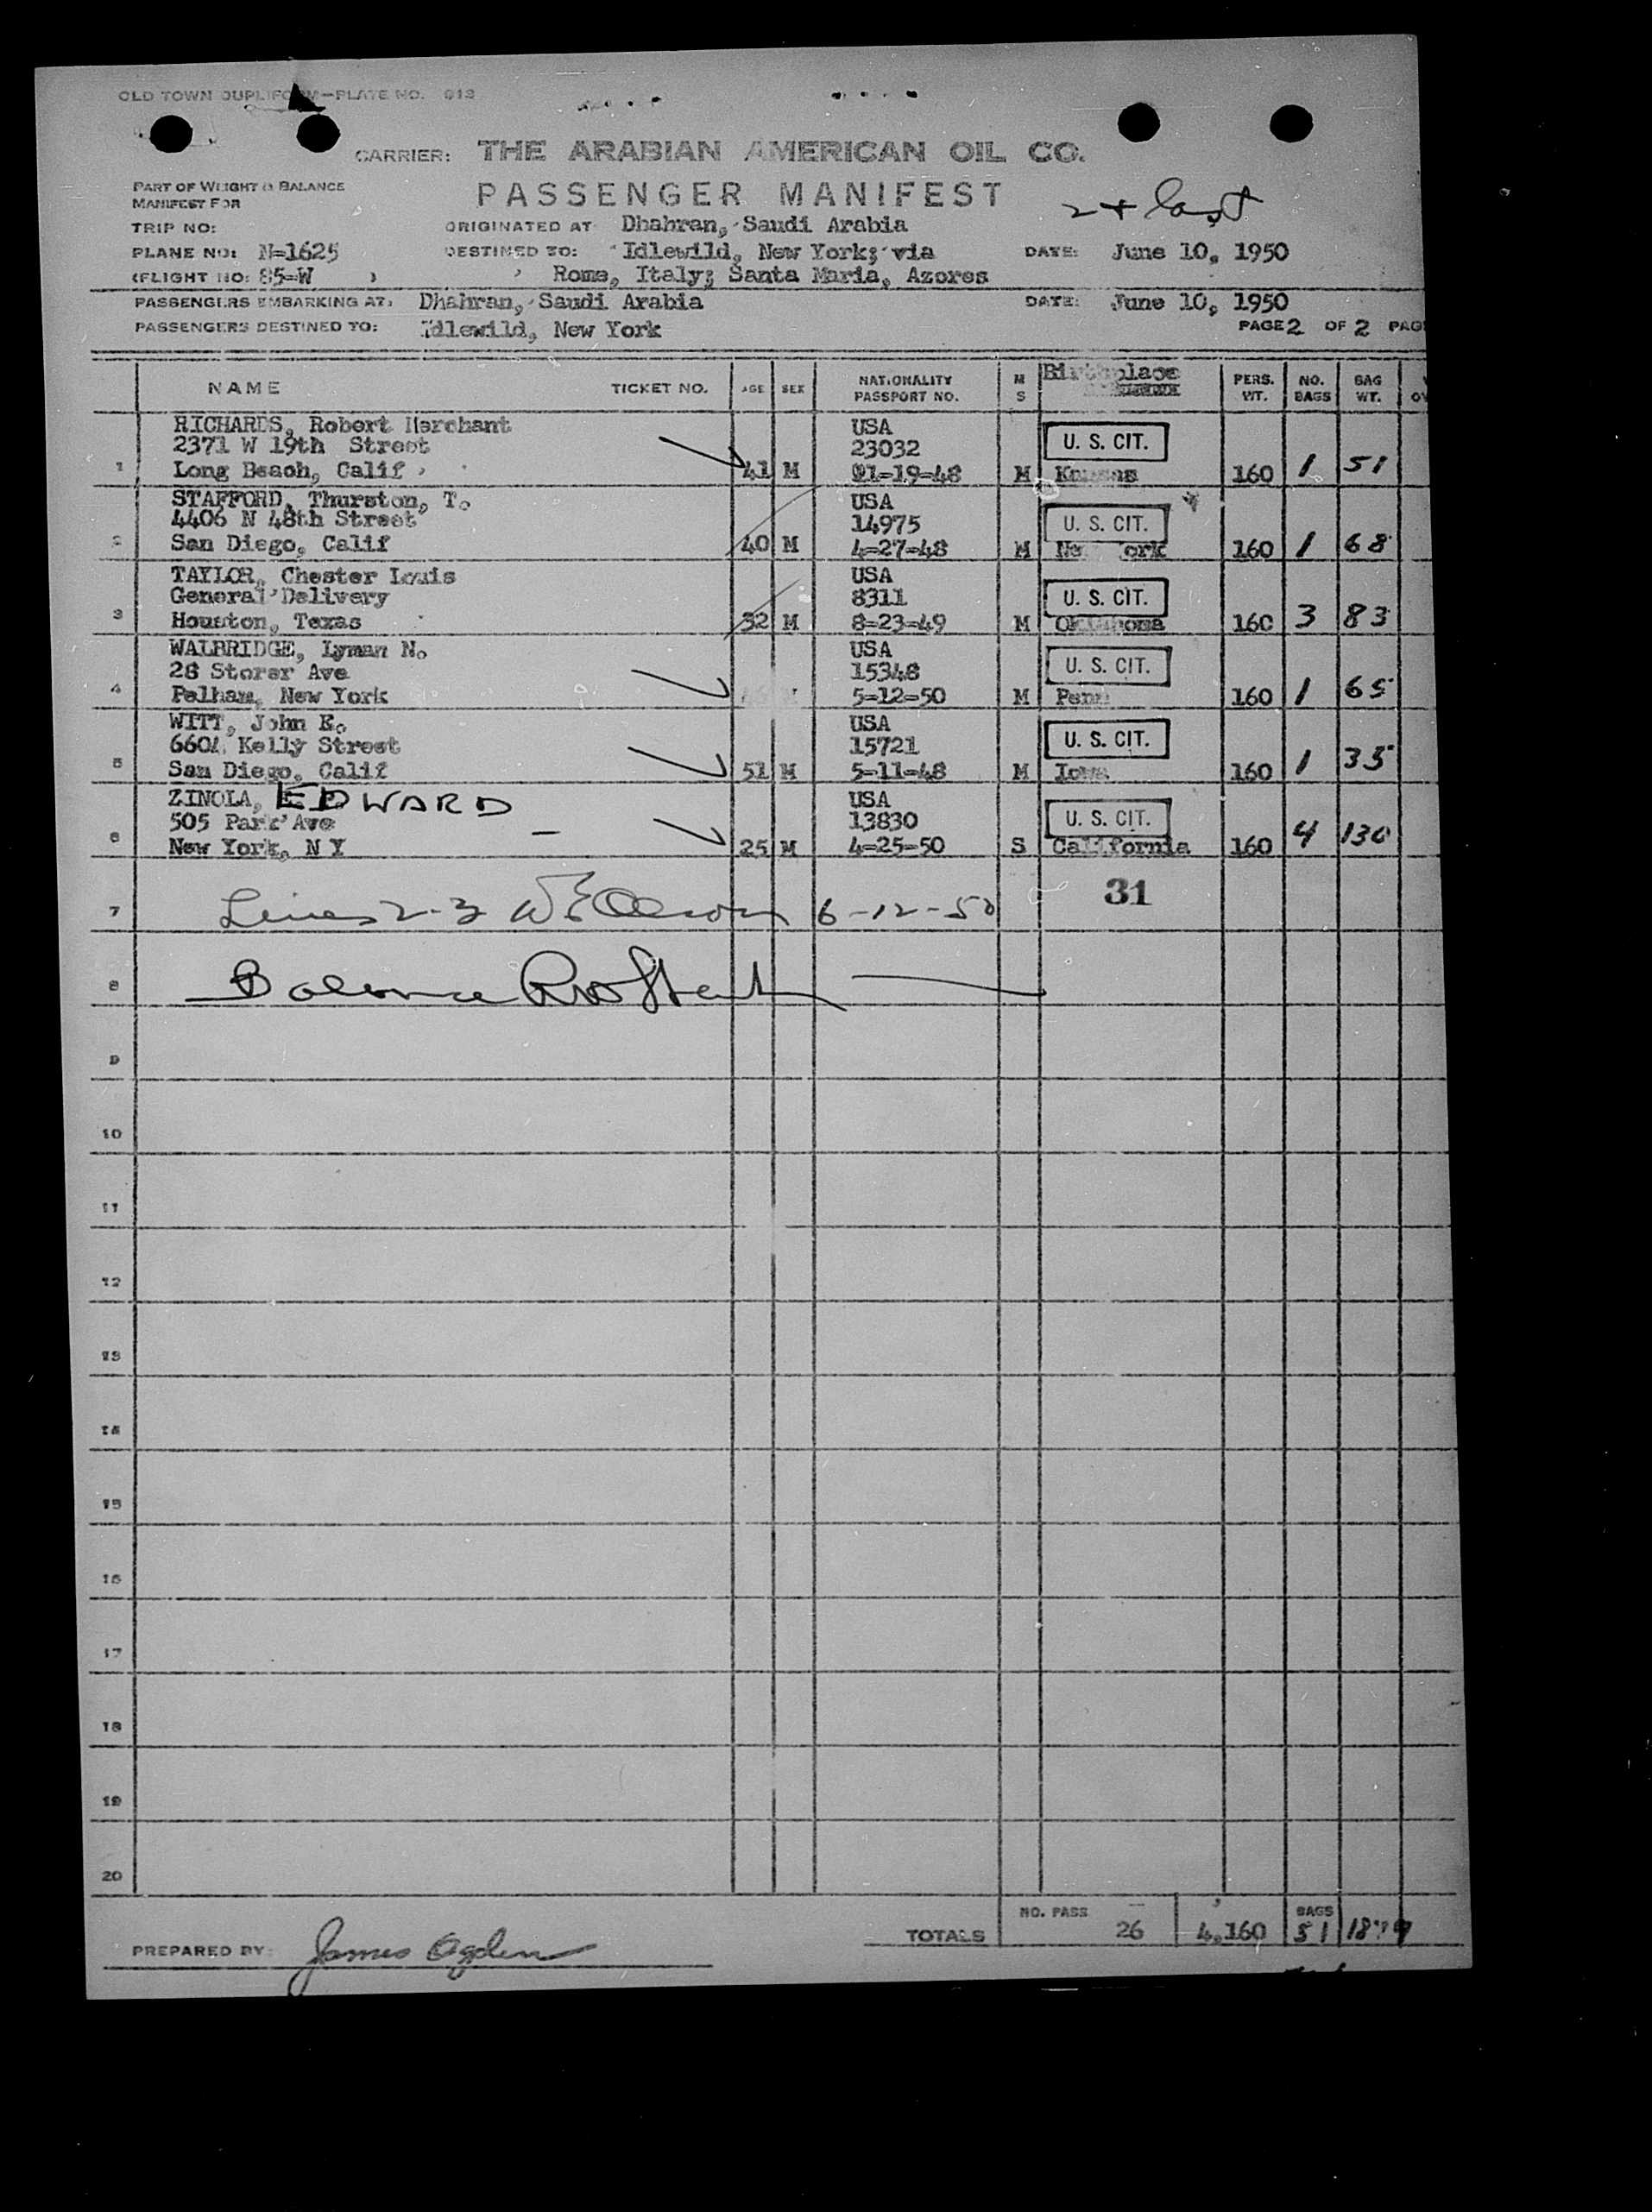 OLD TOWN DUPLIFORM—PLATE NO. 913
CARRIER: THE ARABIAN AMERICAN OIL CO.
PART OF WEIGHT & BALANCE
MANIFEST FOR
PASSENGER MANIFEST
2 + last
TRIP NO: ORIGINATED AT Dhahran, Saudi Arabia
PLANE NO: N-1625 DESTINED TO: Idlewild, New York; via DATE: June 10, 1950
(FLIGHT NO: 85-W ) Rome, Italy; Santa Maria, Azores
PASSENGERS EMBARKING AT: Dhahran, Saudi Arabia DATE: June 10, 1950
PASSENGERS DESTINED TO: Idlewild, New York PAGE 2 OF 2 PAG
NAME TICKET NO. AGE SEX NATIONALITY PASSPORT NO. M S Birthplace PERS. WT. NO. BAGS BAG WT.
RICHARDS, Robert Merchant USA
2371 W 19th Street 23032 U. S. CIT.
1 Long Beach, Calif 41 M 11-19-48 M Kansas 160 1 51
STAFFORD, Thurston, T. USA
4406 N 48th Street 14975 U. S. CIT.
2 San Diego, Calif 40 M 4-27-48 M New York 160 1 68
TAYLOR, Chester Louis USA
General Delivery 8311 U. S. CIT.
3 Houston, Texas 32 M 8-23-49 M Oklahoma 160 3 83
WALBRIDGE, Lyman N. USA
28 Storer Ave 15348 U. S. CIT.
4 Pelham, New York 5-12-50 M Penn 160 1 65
WITT, John E. USA
6604 Kelly Street 15721 U. S. CIT.
5 San Diego, Calif 51 M 5-11-48 M Iowa 160 1 35
ZINOLA, EDWARD USA
505 Park Ave 13830 U. S. CIT.
6 New York, N Y 25 M 4-25-50 S California 160 4 130
31
7 Lines 2-3 6-12-50
8 Balance
9
10
11
12
13
14
15
16
17
18
19
20
PREPARED BY: James Ogden TOTALS NO. PASS 26 4,160 BAGS 51